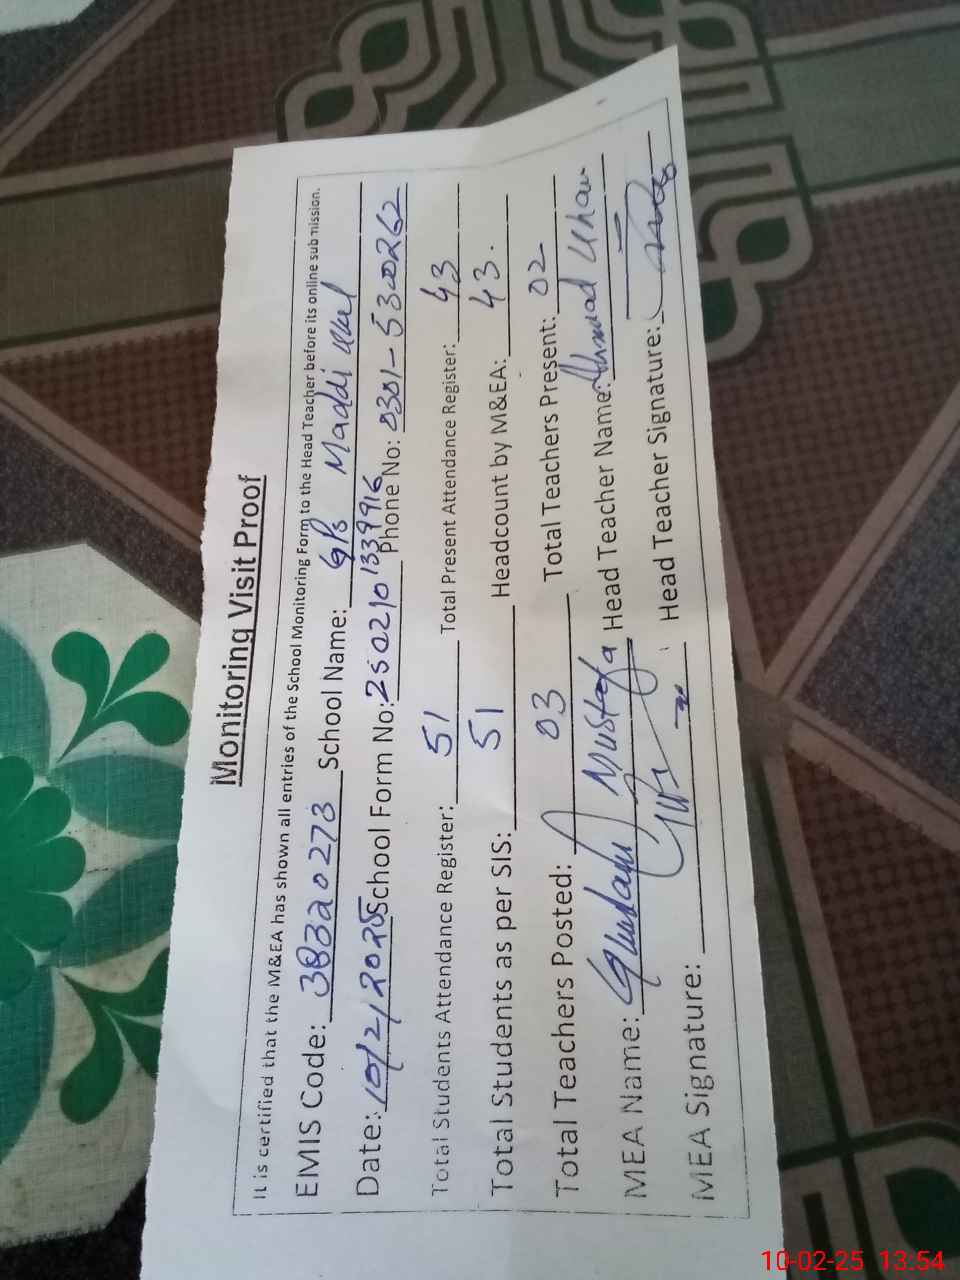 Monitoring Visit Proof
It is certified that the M&EA has shown all entries of the School Monitoring Form to the Head Teacher before its online submission.
EMIS Code: 38320273 School Name: GPS Maddi
Date: 10/2/2025 School Form No: 2502101339916 Phone No: 0301-5300262
Total Students Attendance Register: 51 Total Present Attendance Register: 43
Total Students as per SIS: 51 Headcount by M&EA: 43.
Total Teachers Posted: 03 Total Teachers Present: 02
MEA Name: Ghulam Mustafa Head Teacher Name: Ahmad Khan
MEA Signature: Head Teacher Signature:
10-02-25 13:54